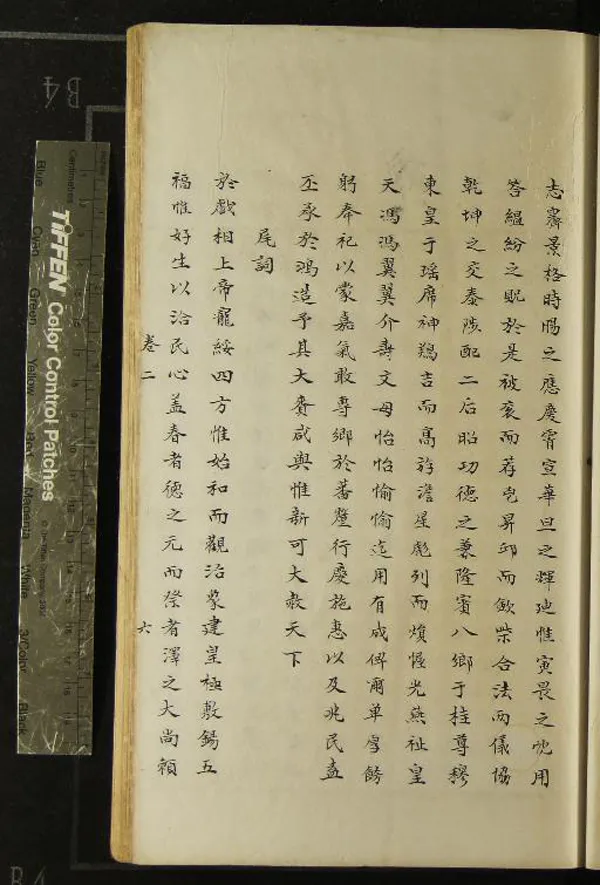 志齋景格時暘之應慶霄宣華旦之輝迪惟寅畏之忱用
答縕紛之貺於是被袞而荐屺昇邱而歆柴合法而儀協
乾坤之交泰陟配二后昭功德之兼隆賓八鄉于桂尊穆
東皇于瑤席神鷄言而高游澹星彪列而煩惺光燕祉皇
天馮馮翼翼介壽文母怡怡愉愉迄用有成俾爾單厚飭
躬奉祀以蒙嘉氣敢專鄉於蕃釐行慶施惠以及兆民盍
丕承於鴻造予其大賚咸與惟新可大赦天下
尾詞
於戲相上帝寵綏四方惟始和而觀治蒙建皇極敷錫五
福惟好生以洽民心盖春者德之元而祭者澤之大尚賴
卷二
六
TIFFEN Color Control Patches
Centimetres
Blue
Cyan
Green
Yellow
Red
Magenta
White
3/Color
Black
B4
B4